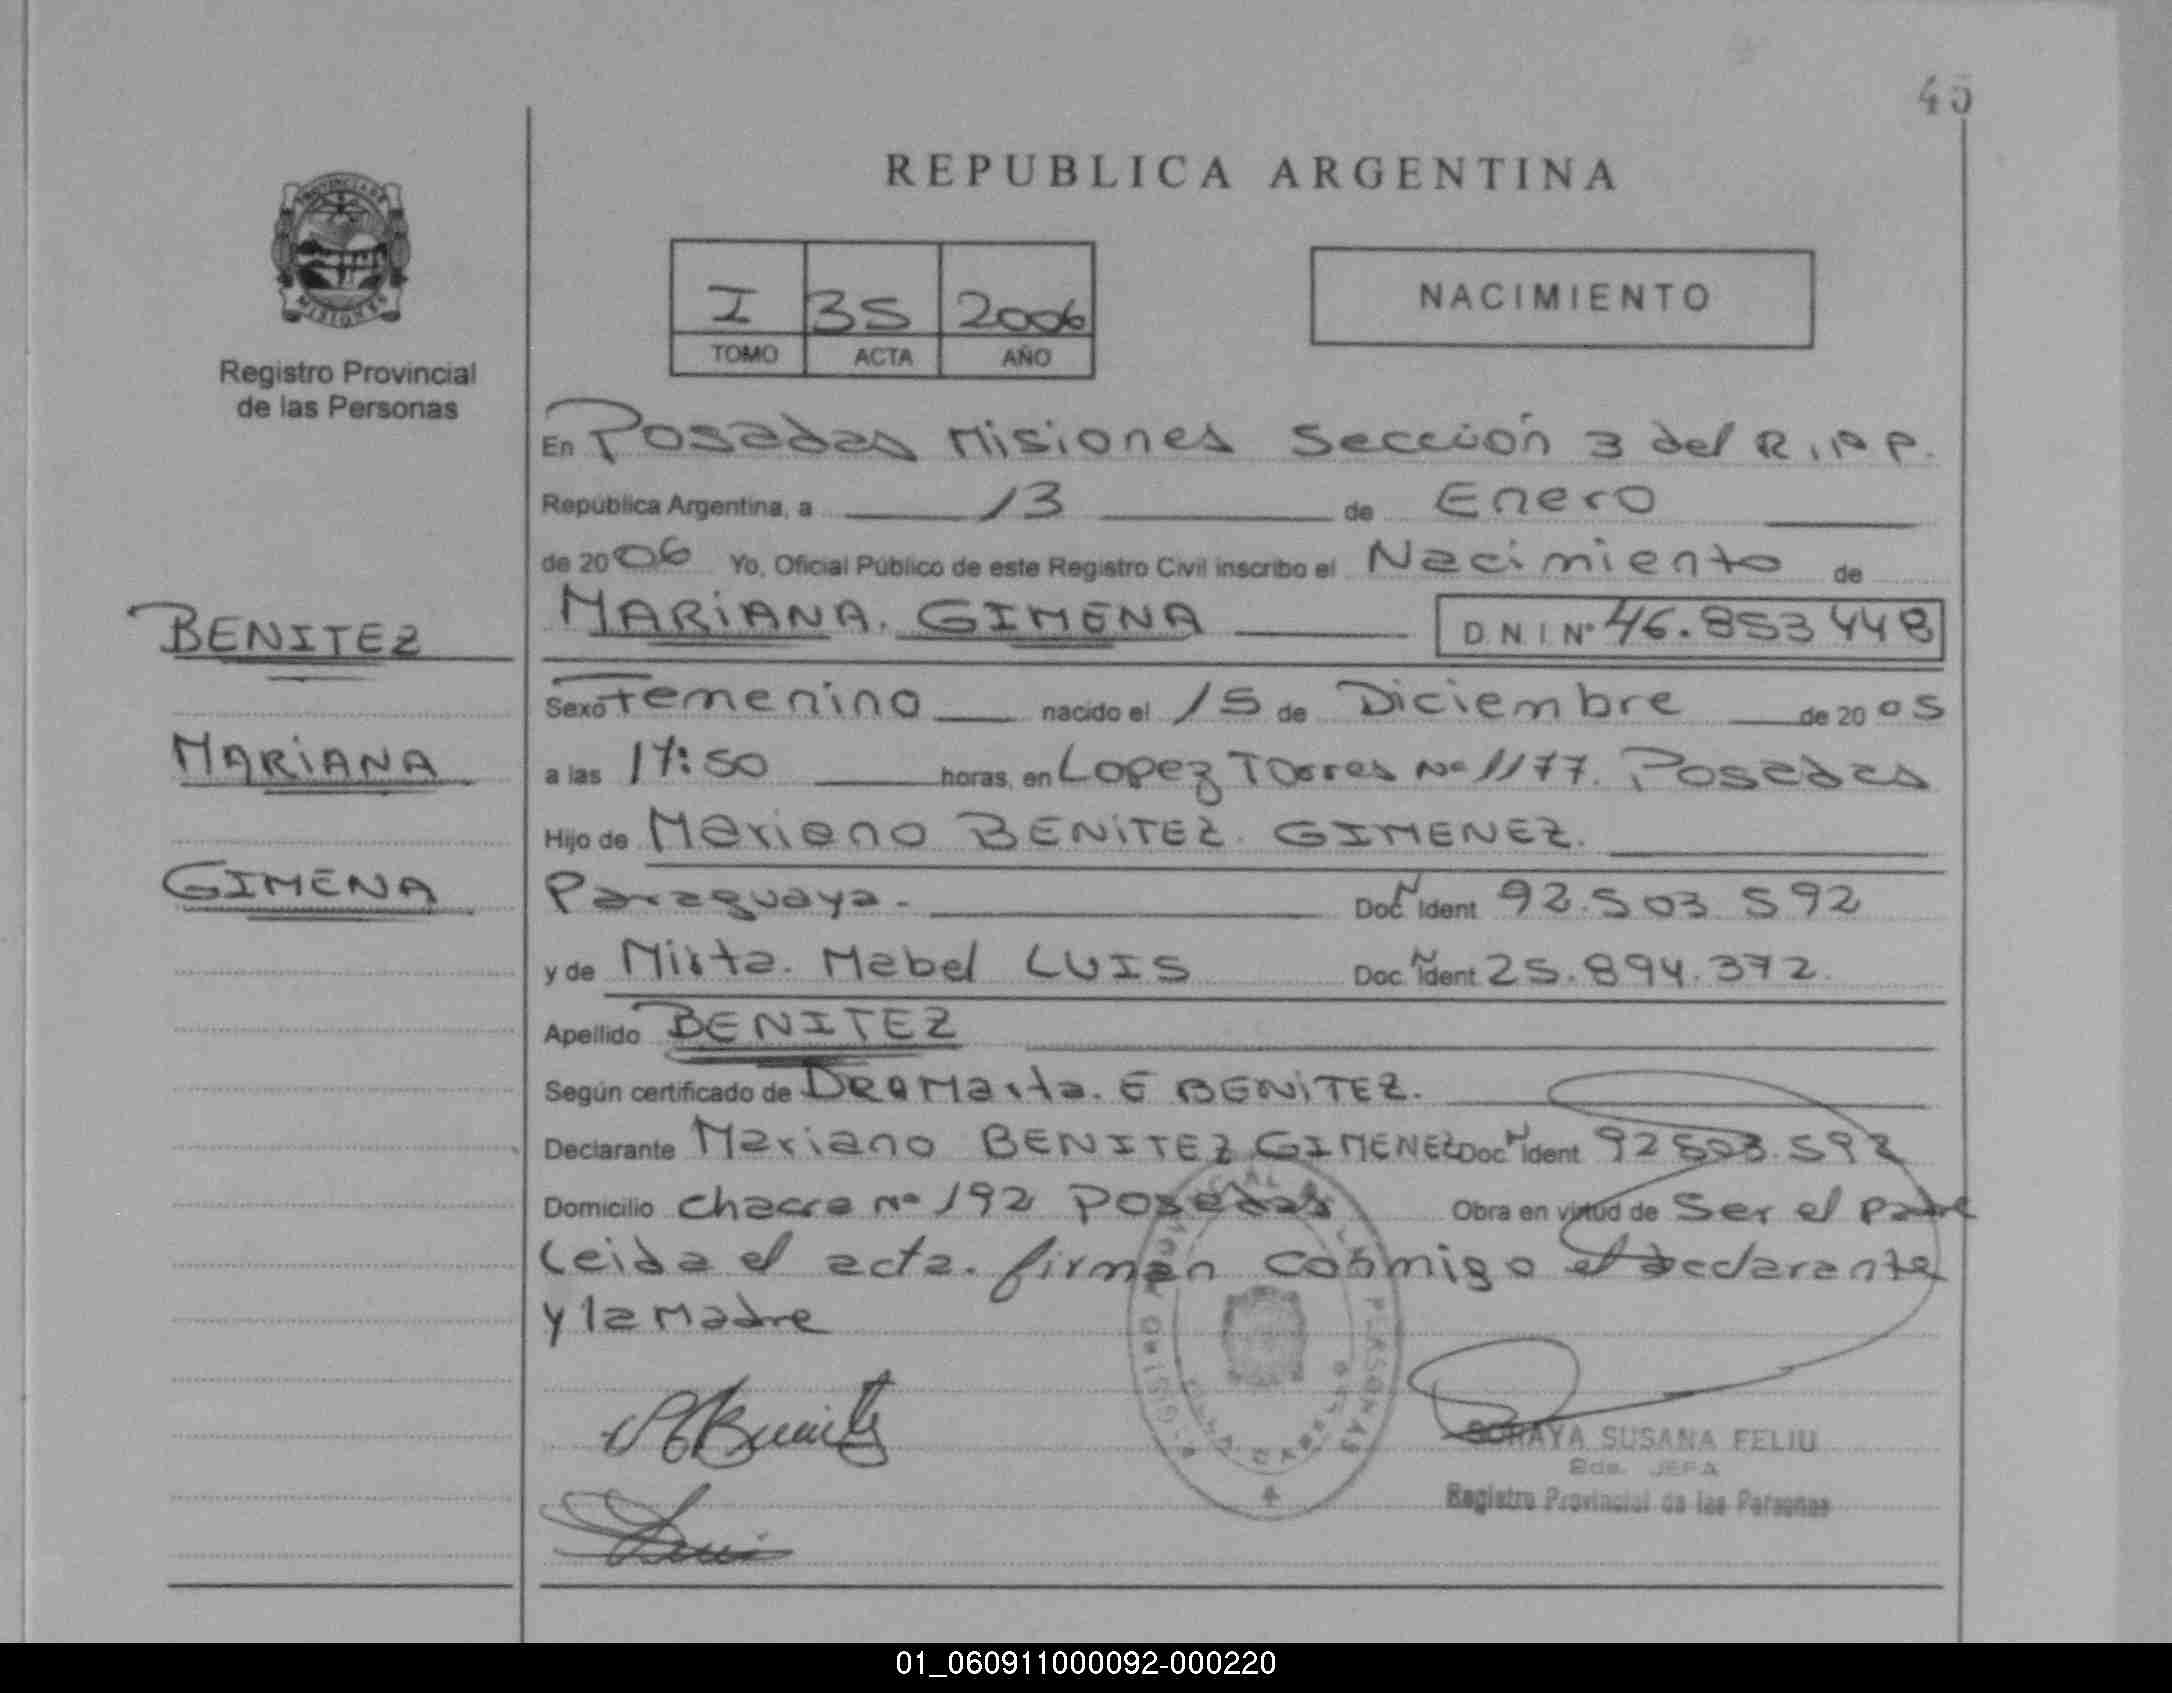 45
REPUBLICA ARGENTINA
PROVINCIA DE
MISIONES
Registro Provincial
de las Personas
I 35 2006
TOMO ACTA AÑO
NACIMIENTO
En Posadas Misiones Sección 3 del R.P.P.
República Argentina, a 13 de Enero
de 2006 Yo, Oficial Público de este Registro Civil inscribo el Nacimiento de
BENITEZ
MARIANA. GIMENA D.N.I. Nº 46.853448
Sexo Femenino nacido el 15 de Diciembre de 2005
MARIANA
a las 17:50 horas, en Lopez Torres Nº 1177. Posadas
Hijo de Mariano BENITEZ. GIMENEZ.
GIMENA
Paraguaya. Doc Ident 92.503.592
y de Mirta. Mabel LUIS Doc Ident 25.894.372.
Apellido BENITEZ
Según certificado de DRA Marta. E BENITEZ.
Declarante Mariano BENITEZ GIMENEZ Doc Ident 92503.592
Domicilio chacra Nº 192 Posadas Obra en virtud de Ser el padre
Leida el acta. firman conmigo el declarante
y la Madre
SORAYA SUSANA FELIU
JEFA
Registro Provincial de las Personas
01_060911000092-000220